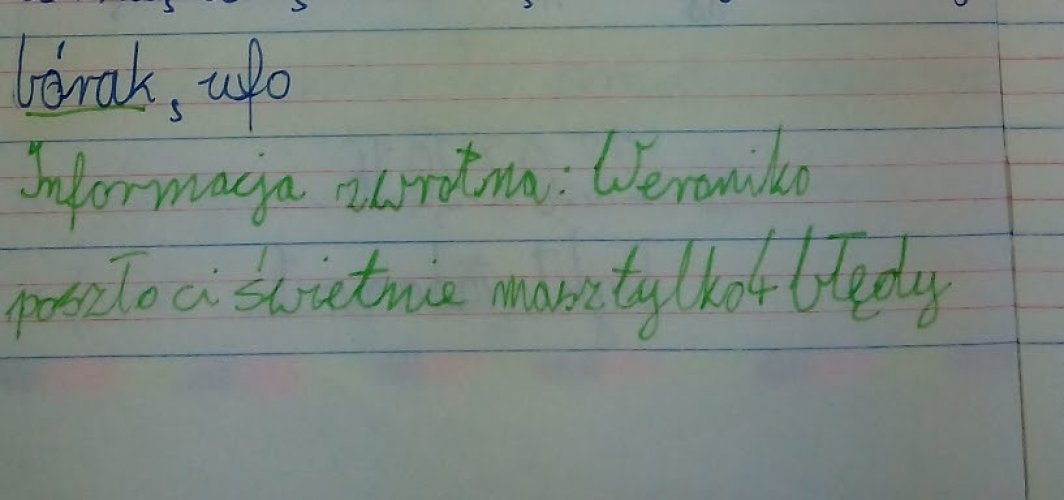 bórak, ufo
Informacja zwrotna: Weroniko
poszło ci świetnie masz tylko 4 błędy